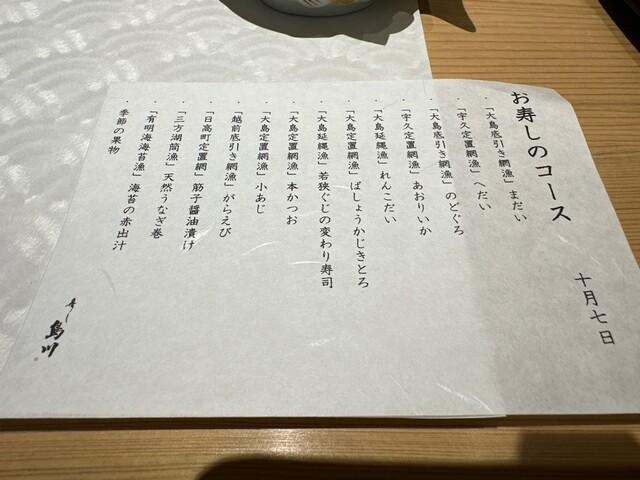 お寿しのコース
十月七日
・「大島底引き網漁」まだい
・「宇久定置網漁」へだい
・「大島底引き網漁」のどぐろ
・「宇久定置網漁」あおりいか
・「大島延縄漁」れんこだい
・「大島定置網漁」ばしょうかじきとろ
・「大島延縄漁」若狭ぐじの変わり寿司
・「大島定置網漁」本かつお
・「大島定置網漁」小あじ
・「越前底引き網漁」がらえび
・「日高町定置網」筋子醤油漬け
・「三方湖筒漁」天然うなぎ巻
・「有明海海苔漁」海苔の赤出汁
・季節の果物
寿し 鳥川